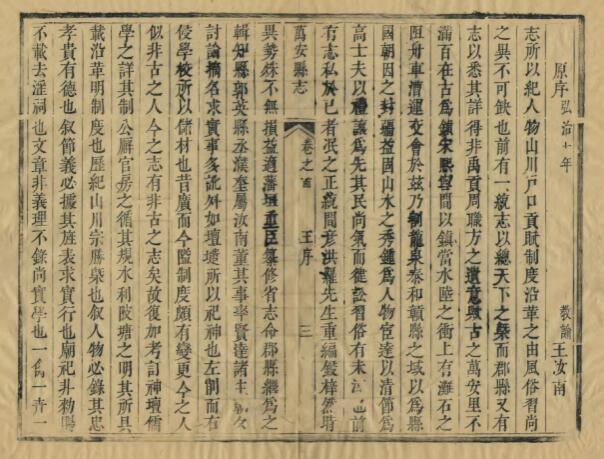 原序弘治十年 教諭王汝南
志所以紀人物山川戸口貢賦制度沿革之由風俗習尚
之異不可缺也前有一統志以總天下之槩而郡縣又有
志以悉其詳得非禹貢周職方之遺意歟古之萬安里不
滿百在古爲鎮宋熙寧間以鎮當水陸之衝上有灘石之
阻舟車漕運交會於兹乃制龍泉泰和贛縣之域以爲縣
國朝因之封疆益固山水之秀鍾爲人物宦達以清節爲
高士夫以禮讓爲先其民尚氣而健訟習俗有未 也前
有志私於已者泯之正統間彦洪羅先生重編嚴梓然時
萬安縣志 卷之首 王序 三
異勢殊不無損益適藩垣重臣纂修省志俞郡縣繼爲之
輯知縣郭英縣丞濮奎屬汝南董其事率賢達諸
討論摘名求實事多訛外如壇壝所以祀神也左制而右
侵學校所以儲材也昔廣而今隘制度頗有變更今之人
似非古之人今之志有非古之志矣故復加考訂神壇儒
學之詳其制公廨官房之循其規水利陂塘之明其所具
載沿革明制度也歷紀山川宗勝槩也叙人物必錄其忠
孝貴有德也叙節義必據其旌表求實行也廟祀非勑賜
不載去淫祠也文章非義理不錄尚實學也一爲一卉一